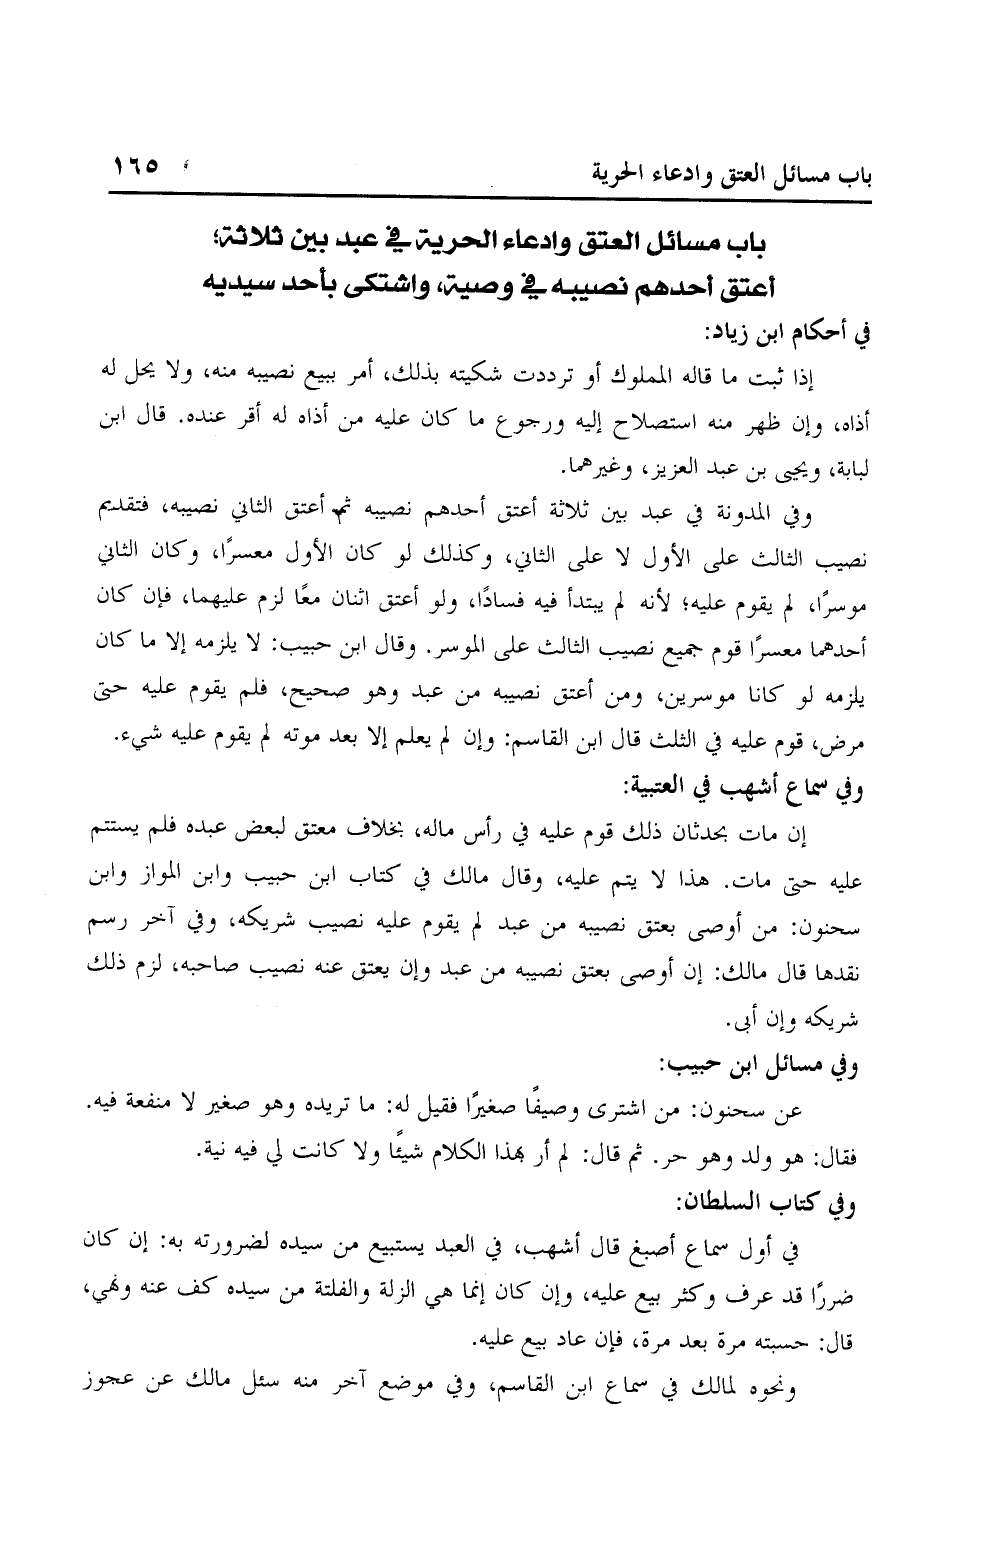 باب مسائل العتق وادعاء الحرية ١٦٥
باب مسائل العتق وادعاء الحرية في عبد بين ثلاثة؛
أعتق أحدهم نصيبه في وصية، واشتكى بأحد سيديه
في أحكام ابن زياد:
إذا ثبت ما قاله المملوك أو ترددت شكيته بذلك، أمر ببيع نصيبه منه، ولا يحل له
أذاه، وإن ظهر منه استصلاح إليه ورجوع ما كان عليه من أذاه له أقر عنده. قال ابن
لبابة، ويحيى بن عبد العزيز، وغيرهما.
وفي المدونة في عبد بين ثلاثة أعتق أحدهم نصيبه ثم أعتق الثاني نصيبه، فتقديم
نصيب الثالث على الأول لا على الثاني، وكذلك لو كان الأول معسرًا، وكان الثاني
موسرًا، لم يقوم عليه؛ لأنه لم يبتدأ فيه فسادًا، ولو أعتق اثنان معًا لزم عليهما، فإن كان
أحدهما معسرًا قوم جميع نصيب الثالث على الموسر. وقال ابن حبيب: لا يلزمه إلا ما كان
يلزمه لو كانا موسرين، ومن أعتق نصيبه من عبد وهو صحيح، فلم يقوم عليه حتى
مرض، قوم عليه في الثلث قال ابن القاسم: وإن لم يعلم إلا بعد موته لم يقوم عليه شيء.
وفي سماع أشهب في العتبية:
إن مات بحدثان ذلك قوم عليه في رأس ماله، بخلاف معتق لبعض عبده فلم يستتم
عليه حتى مات. هذا لا يتم عليه، وقال مالك في كتاب ابن حبيب وابن المواز وابن
سحنون: من أوصى بعتق نصيبه من عبد لم يقوم عليه نصيب شريكه، وفي آخر رسم
نقدها قال مالك: إن أوصى بعتق نصيبه من عبد وإن يعتق عنه نصيب صاحبه، لزم ذلك
شريكه وإن أبى.
وفي مسائل ابن حبيب:
عن سحنون: من اشترى وصيفًا صغيرًا فقيل له: ما تريده وهو صغير لا منفعة فيه.
فقال: هو ولد وهو حر. ثم قال: لم أر بهذا الكلام شيئًا ولا كانت لي فيه نية.
وفي كتاب السلطان:
في أول سماع أصبغ قال أشهب، في العبد يستبيع من سيده لضرورته به: إن كان
ضررًا قد عرف وكثر بيع عليه، وإن كان إنما هي الزلة والفلتة من سيده كف عنه ونهي،
قال: حسبته مرة بعد مرة، فإن عاد بيع عليه.
ونحوه لمالك في سماع ابن القاسم، وفي موضع آخر منه سئل مالك عن عجوز